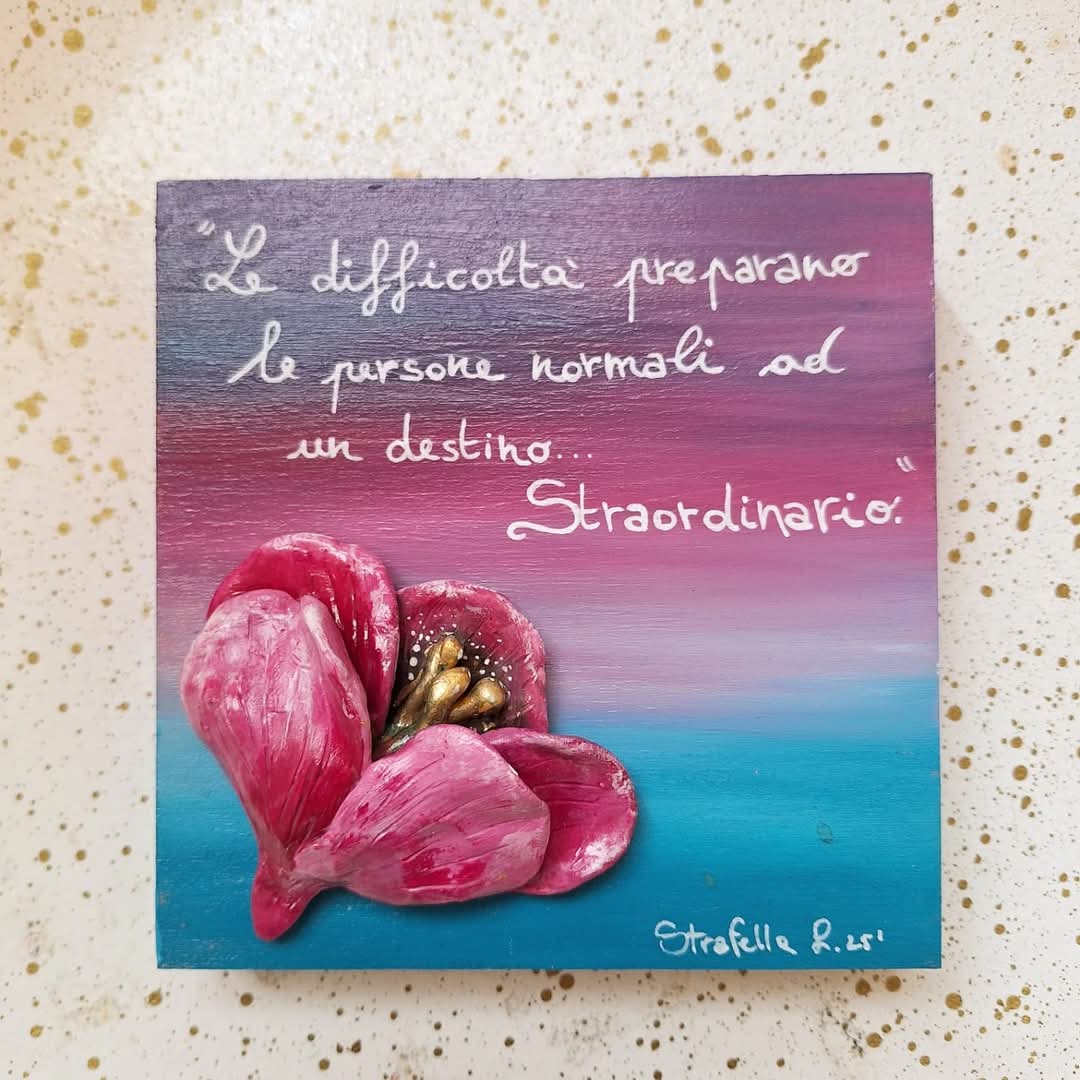 "Le difficoltà preparano
le persone normali ad
un destino...
Straordinario."
Strafella L. 25'